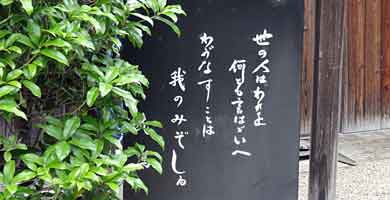 世の人はわれを
何とも言はゞいへ
わがなすことは
我のみぞしる